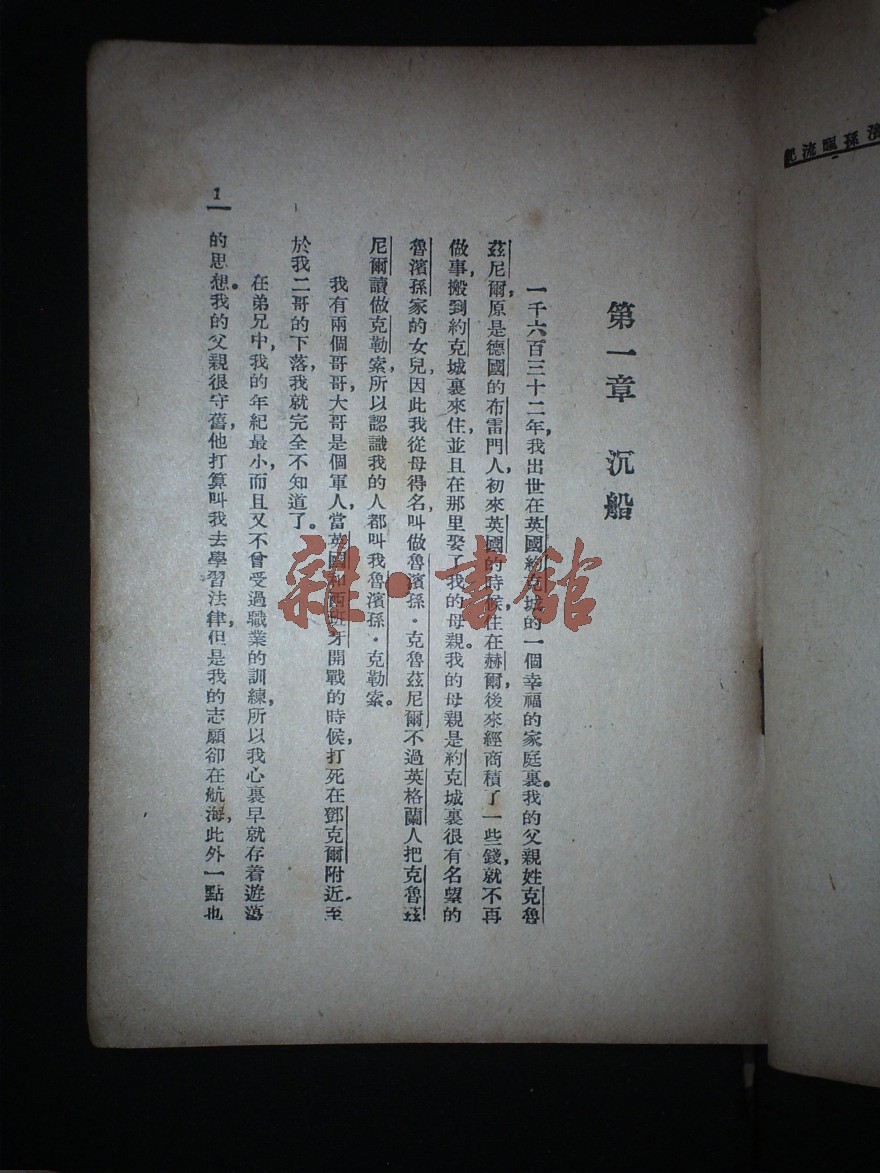 第一章 沉船
一千六百三十二年，我出世在英國約克城的一個幸福的家庭裏。我的父親姓克魯
茲尼爾，原是德國的布雷門人，初來英國的時候，住在赫爾，後來經商積了一些錢，就不再
做事，搬到約克城裏來住，並且在那里娶了我的母親。我的母親是約克城裏很有名望的
魯濱孫家的女兒，因此我從母得名，叫做魯濱孫·克魯茲尼爾，不過英格蘭人把克魯茲
尼爾讀做克勒索，所以認識我的人都叫我魯濱孫·克勒索。
我有兩個哥哥，大哥是個軍人，當英國和西班牙開戰的時候，打死在鄧克爾附近，至
於我二哥的下落，我就完全不知道了。
在弟兄中，我的年紀最小，而且又不曾受過職業的訓練，所以我心裏早就存着遊蕩
的思想。我的父親很守舊，他打算叫我去學習法律，但是我的志願卻在航海，此外一點也
1
孫飄流記
雜·書館